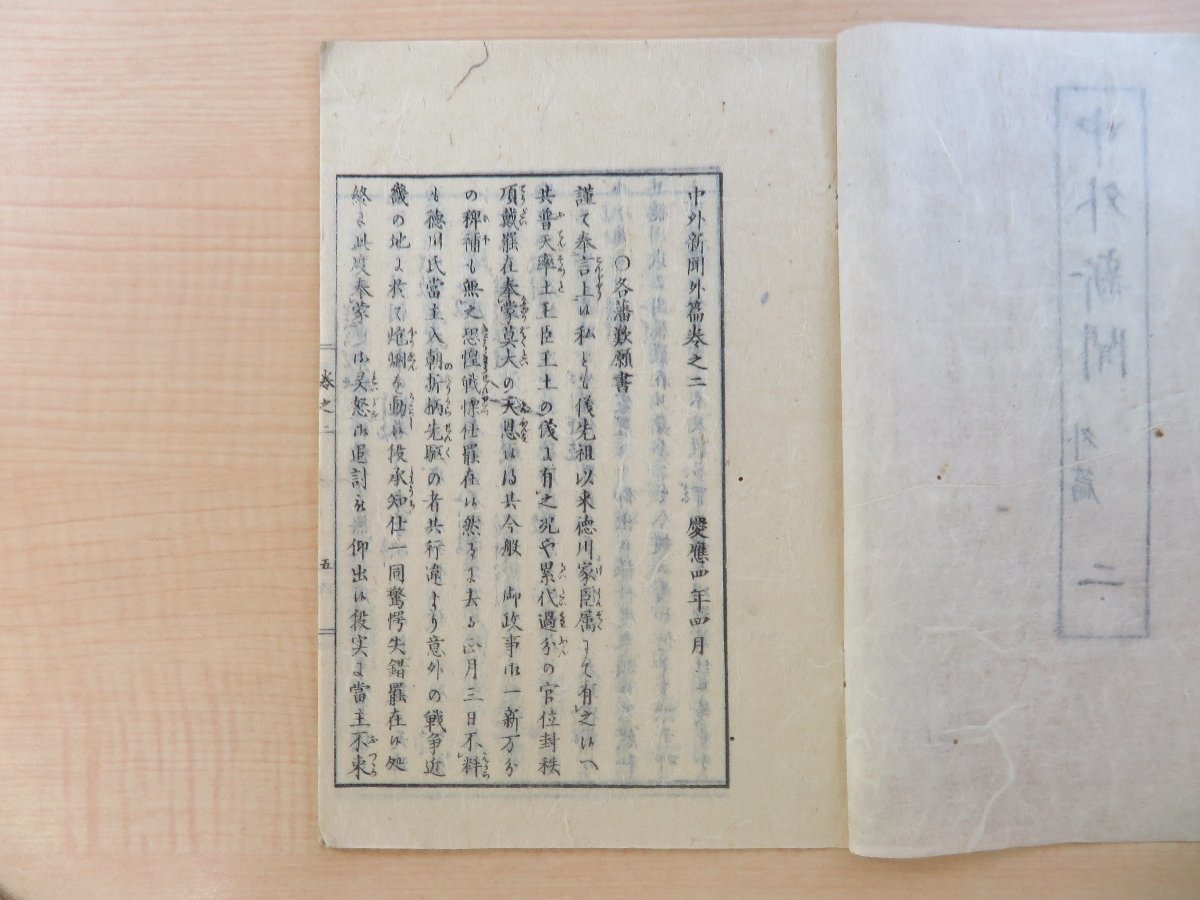 中外新聞 外篇 二
中外新聞外篇巻之二 慶應四年四月
○各藩歎願書
謹て奉言上候私とも儀先祖以来徳川家臣属にて有之候へ
共普天率土王臣王土の儀に有之况や累代過分の官位封秩
頂戴罷在奉蒙莫大の天恩候得共今般 御政事御一新万分
の稗補も無之恐惶戦慄仕罷在候然るに去る正月三日不料
も徳川氏當主入朝折柄先駆の者共行違より意外の戦争近
畿の地に於て炮爛を動候段承知仕一同驚愕失錯罷在候処
終に此度奉蒙 候 怒御追討被 仰出候段実に當主不束
巻之二
五